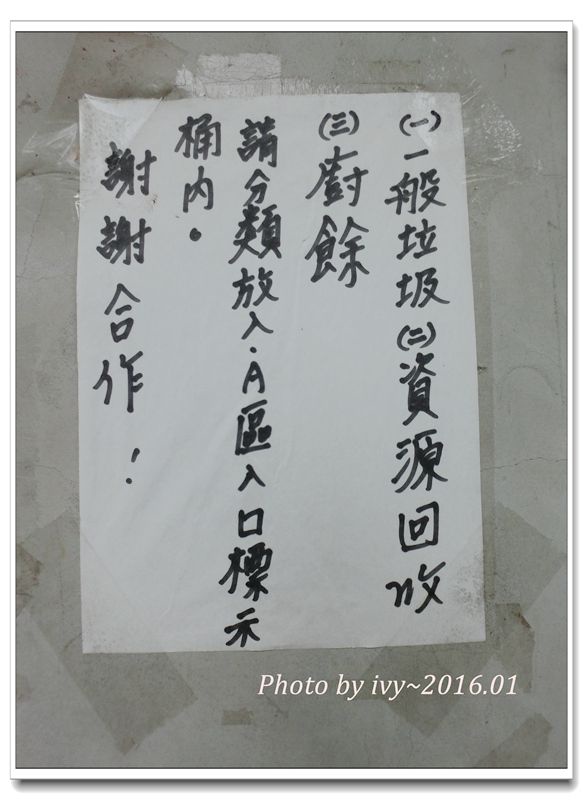 ㈠一般垃圾㈡資源回收
㈢廚餘
請分類放入.A區入口標示
桶內。
謝謝合作!
Photo by ivy~2016.01